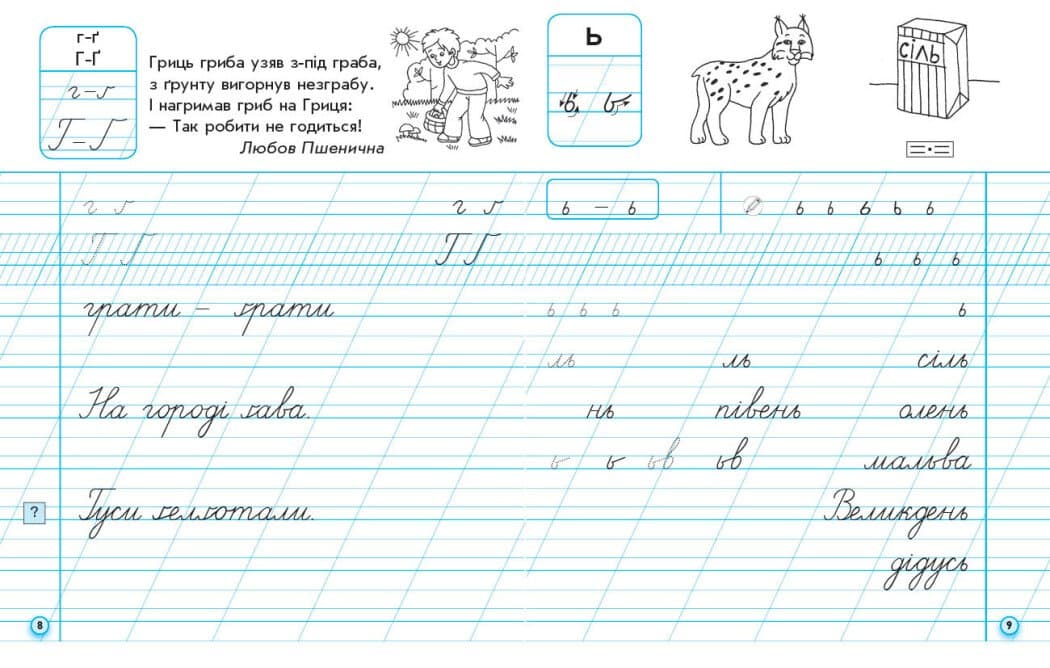 г-ґ
Г-Ґ
г-ґ
Г-Ґ
Гриць гриба узяв з-під граба,
з ґрунту вигорнув незграбу.
І нагримав гриб на Гриця:
— Так робити не годиться!
Любов Пшенична
г ґ г ґ
Г Ґ Г Ґ
грати – ґрати
На городі ґава.
? Гуси ґелґотали.
8
Ь
ь ь
СІЛЬ
ь – ь ь ь ь ь ь
ь ь ь
ь ь ь ь
ль ль сіль
нь півень олень
ь ь ьв ьв мальва
Великдень
дідусь
9